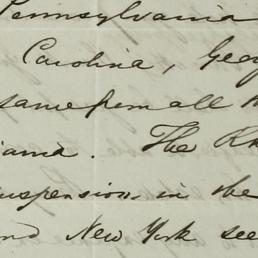 Pennsylvania
Carolina, Geo
same from all
iana. The
uspension, in the
nd New York see